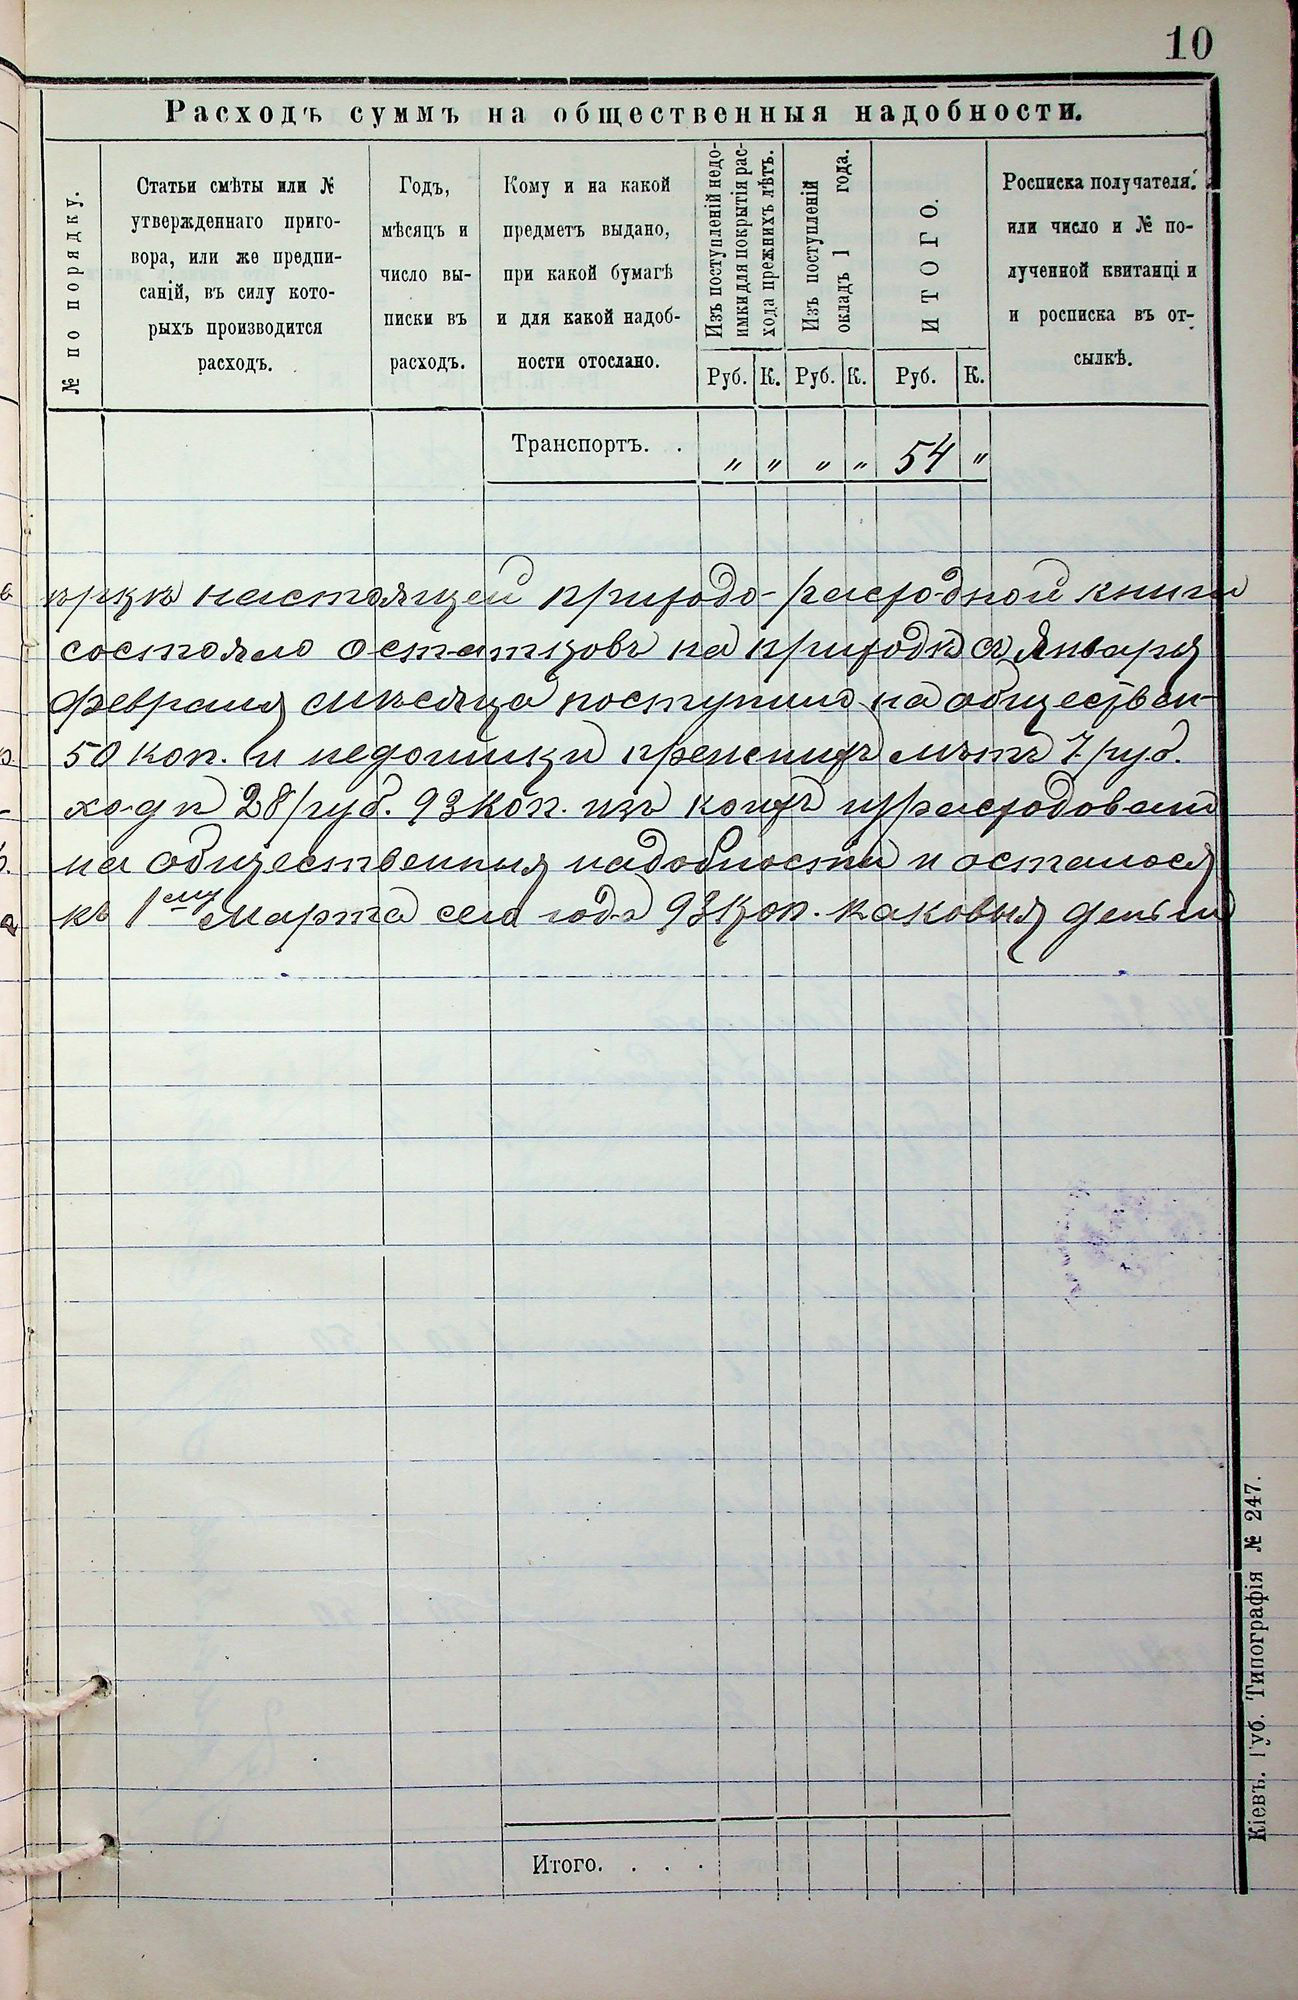 10
Расходъ суммъ на общественныя надобности.
№ по порядку.
Статьи смѣты или №
утвержденнаго приго-
вора, или же предпи-
саній, въ силу кото-
рыхъ производится
расходъ.
Годъ,
мѣсяцъ и
число вы-
писки въ
расходъ.
Кому и на какой
предметъ выдано,
при какой бумагѣ
и для какой надоб-
ности отослано.
Изъ поступленій недо-
имки для покрытія рас-
хода прежнихъ лѣтъ.
Изъ поступленій
окладъ 1 года.
ИТОГО.
Росписка получателя.
или число и № по-
лученной квитанці и
и росписка въ от-
сылкѣ.
Руб. К. Руб. К. Руб. К.
Транспортъ. . „ „ „ „ 54 „
настоящей приходо-расходной книги
состояло остатковъ на приходѣ съ Января
февраля мѣсяца поступило на обществен-
50 коп. и недоимки прежнихъ лѣтъ 7 руб.
ходѣ 28 руб. 93 коп. изъ коихъ израсходовано
на общественныя надобности и осталося
къ 1му Марта сего года 93 коп. каковыя деньги
Итого. . . .
Кіевъ. Губ. Типографія № 247.